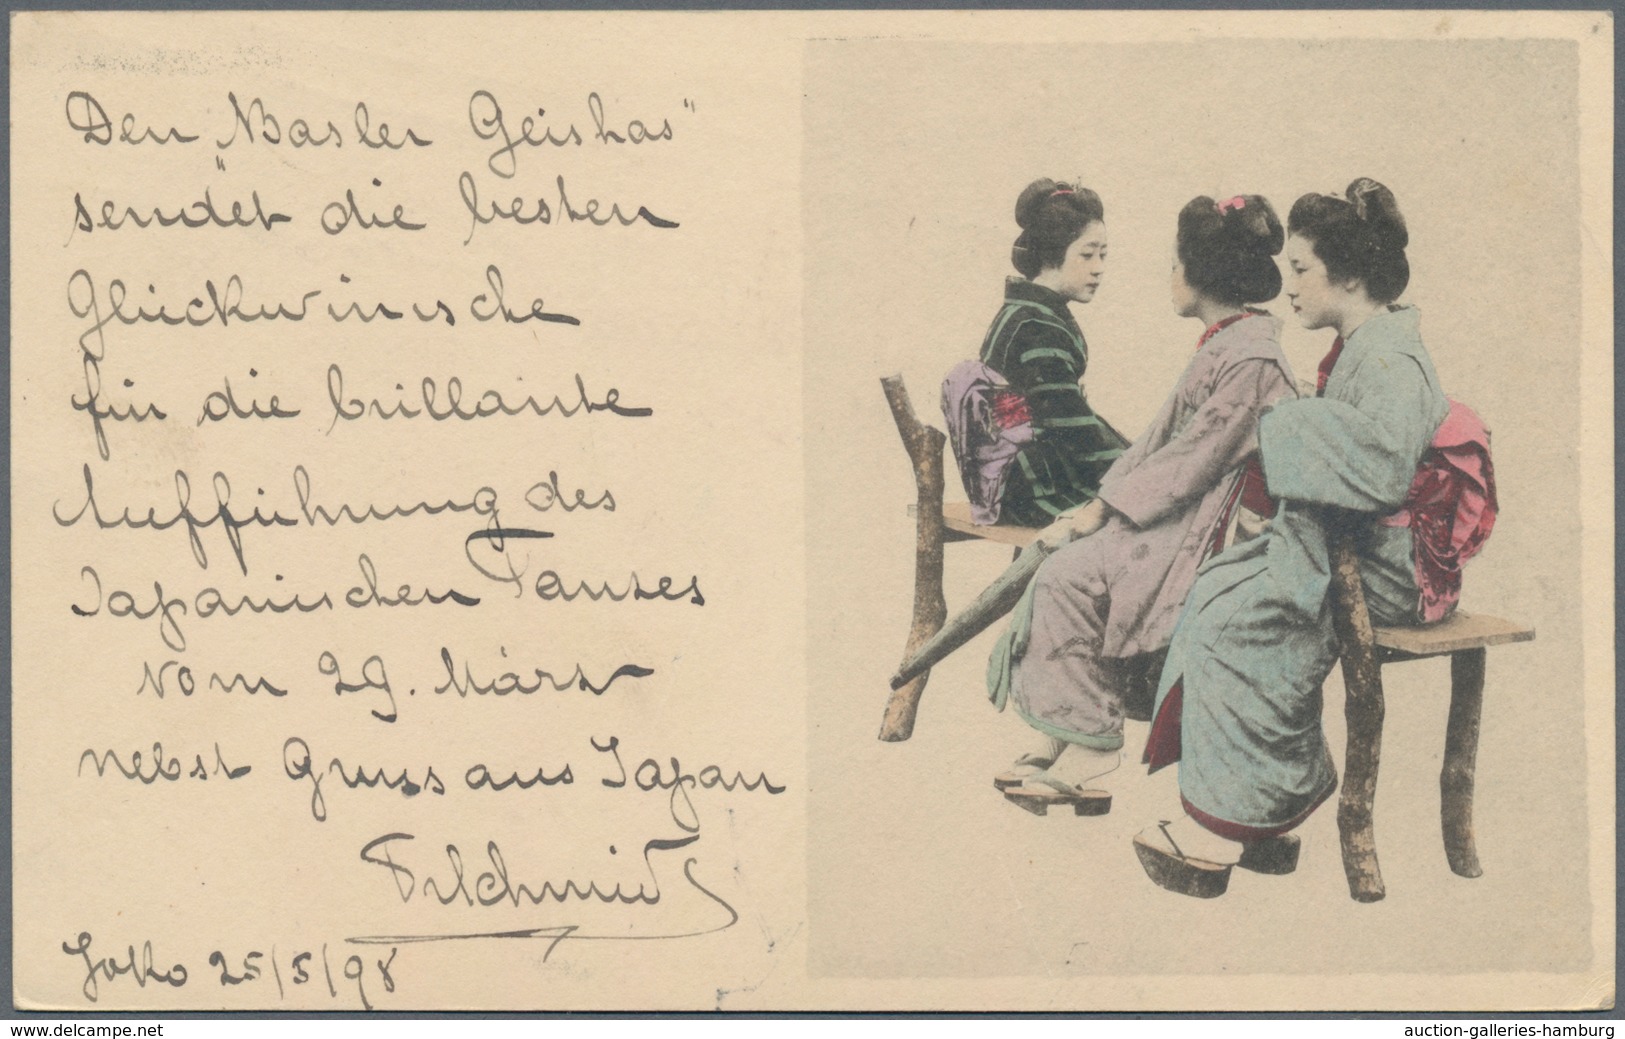 Den „Basler Geishas"
sendet die besten
Glückwünsche
für die brillante
Aufführung des
Japanischen Tanzes
vom 29. März
nebst Gruss aus Japan
Yoko 25/5/98
www.delcampe.net
auction-galleries-hamburg